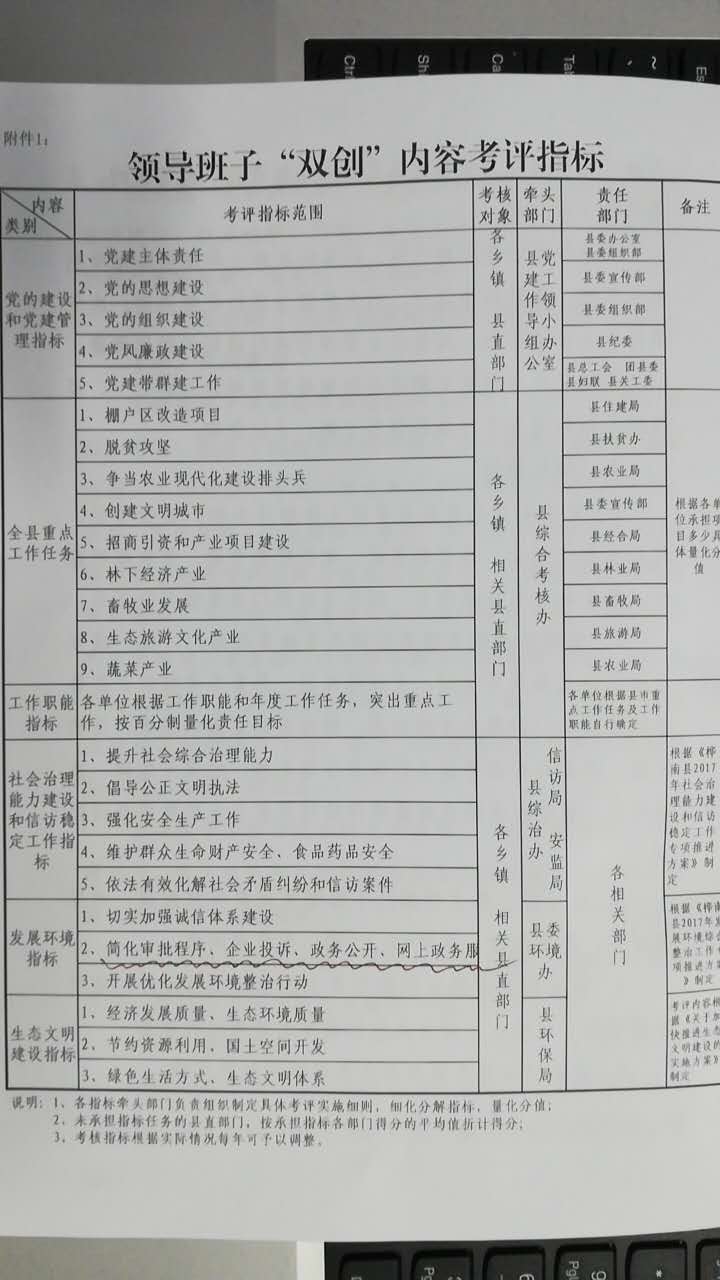 附件1:
领导班子“双创”内容考评指标
内容
类别
考评指标范围
考核
对象
牵头
部门
责任
部门
备注
党的建设
和党建管
理指标
1、党建主体责任
2、党的思想建设
3、党的组织建设
4、党风廉政建设
5、党建带群建工作
各乡镇 县直部门
县党建工作领导小组办公室
县委办公室
县委组织部
县委宣传部
县委组织部
县纪委
县总工会 团县委
县妇联 县关工委
全县重点
工作任务
1、棚户区改造项目
2、脱贫攻坚
3、争当农业现代化建设排头兵
4、创建文明城市
5、招商引资和产业项目建设
6、林下经济产业
7、畜牧业发展
8、生态旅游文化产业
9、蔬菜产业
各乡镇 相关县直部门
县综合考核办
县住建局
县扶贫办
县农业局
县委宣传部
县经合局
县林业局
县畜牧局
县旅游局
县农业局
根据各单
位承担项
目多少具
体量化分
值
工作职能
指标
各单位根据工作职能和年度工作任务，突出重点工
作，按百分制量化责任目标
各单位根据县市重
点工作任务及工作
职能自行确定
社会治理
能力建设
和信访稳
定工作指
标
1、提升社会综合治理能力
2、倡导公正文明执法
3、强化安全生产工作
4、维护群众生命财产安全、食品药品安全
5、依法有效化解社会矛盾纠纷和信访案件
各乡镇 相关县直部门
县综治办
信访局 安监局
各相关部门
根据《桦
南县2017
年社会治
理能力建
设和信访
稳定工作
专项推进
方案》制
定
发展环境
指标
1、切实加强诚信体系建设
2、简化审批程序、企业投诉、政务公开、网上政务服
3、开展优化发展环境整治行动
县委环境办
根据《桦南
县2017年发
展环境综合
整治工作专
项推进方案
》制定
生态文明
建设指标
1、经济发展质量、生态环境质量
2、节约资源利用、国土空间开发
3、绿色生活方式、生态文明体系
县环保局
考评内容根
据《关于加
快推进生态
文明建设的
实施方案》
制定
说明：1、各指标牵头部门负责组织制定具体考评实施细则，细化分解指标，量化分值；
2、未承担指标任务的县直部门，按承担指标各部门得分的平均值折计得分；
3、考核指标根据实际情况每年可予以调整。
Ctr
Sh
Ca
Tab
~
Es